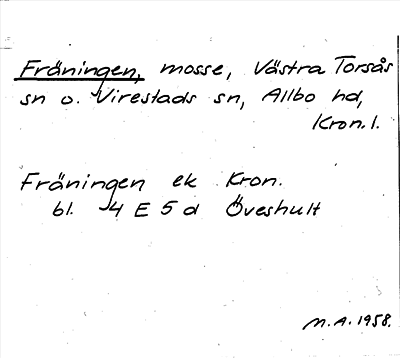 Fräningen, mosse, Västra Torsås
sn o. Virestads sn, Allbo hd,
Kron. l.
Fräningen ek Kron.
bl. 4 E 5 d Öveshult
M.A. 1958.